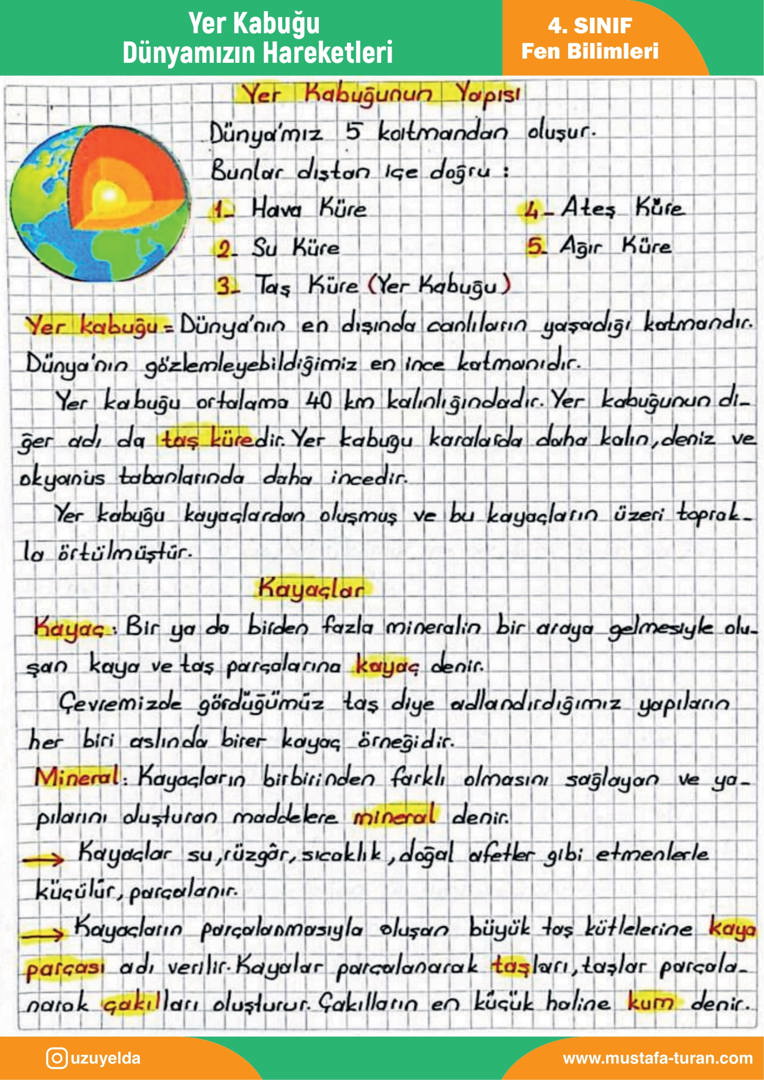 Yer Kabuğu
Dünyamızın Hareketleri
4. SINIF
Fen Bilimleri
Yer Kabuğunun Yapısı
Dünya'mız 5 katmandan oluşur.
Bunlar dıştan içe doğru :
1- Hava Küre
2- Su Küre
3- Taş Küre (Yer Kabuğu)
4- Ateş Küre
5. Ağır Küre
Yer kabuğu = Dünya'nın en dışında canlıların yaşadığı katmandır.
Dünya'nın gözlemleyebildiğimiz en ince katmanıdır.
Yer kabuğu ortalama 40 km kalınlığındadır. Yer kabuğunun di-
ğer adı da taş küredir. Yer kabuğu karalarda daha kalın, deniz ve
okyanus tabanlarında daha incedir.
Yer kabuğu kayaçlardan oluşmuş ve bu kayaçların üzeri toprak-
la örtülmüştür.
Kayaçlar
Kayaç : Bir ya da birden fazla mineralin bir araya gelmesiyle olu-
şan kaya ve taş parçalarına kayaç denir.
Çevremizde gördüğümüz taş diye adlandırdığımız yapıların
her biri aslında birer kayaç örneğidir.
Mineral : Kayaçların birbirinden farklı olmasını sağlayan ve ya-
pılarını oluşturan maddelere mineral denir.
→ Kayaçlar su, rüzgâr, sıcaklık, doğal afetler gibi etmenlerle
küçülür, parçalanır.
→ Kayaçların parçalanmasıyla oluşan büyük taş kütlelerine kaya
parçası adı verilir. Kayalar parçalanarak taşları, taşlar parçala-
narak çakılları oluşturur. Çakılların en küçük haline kum denir.
uzuyelda
www.mustafa-turan.com